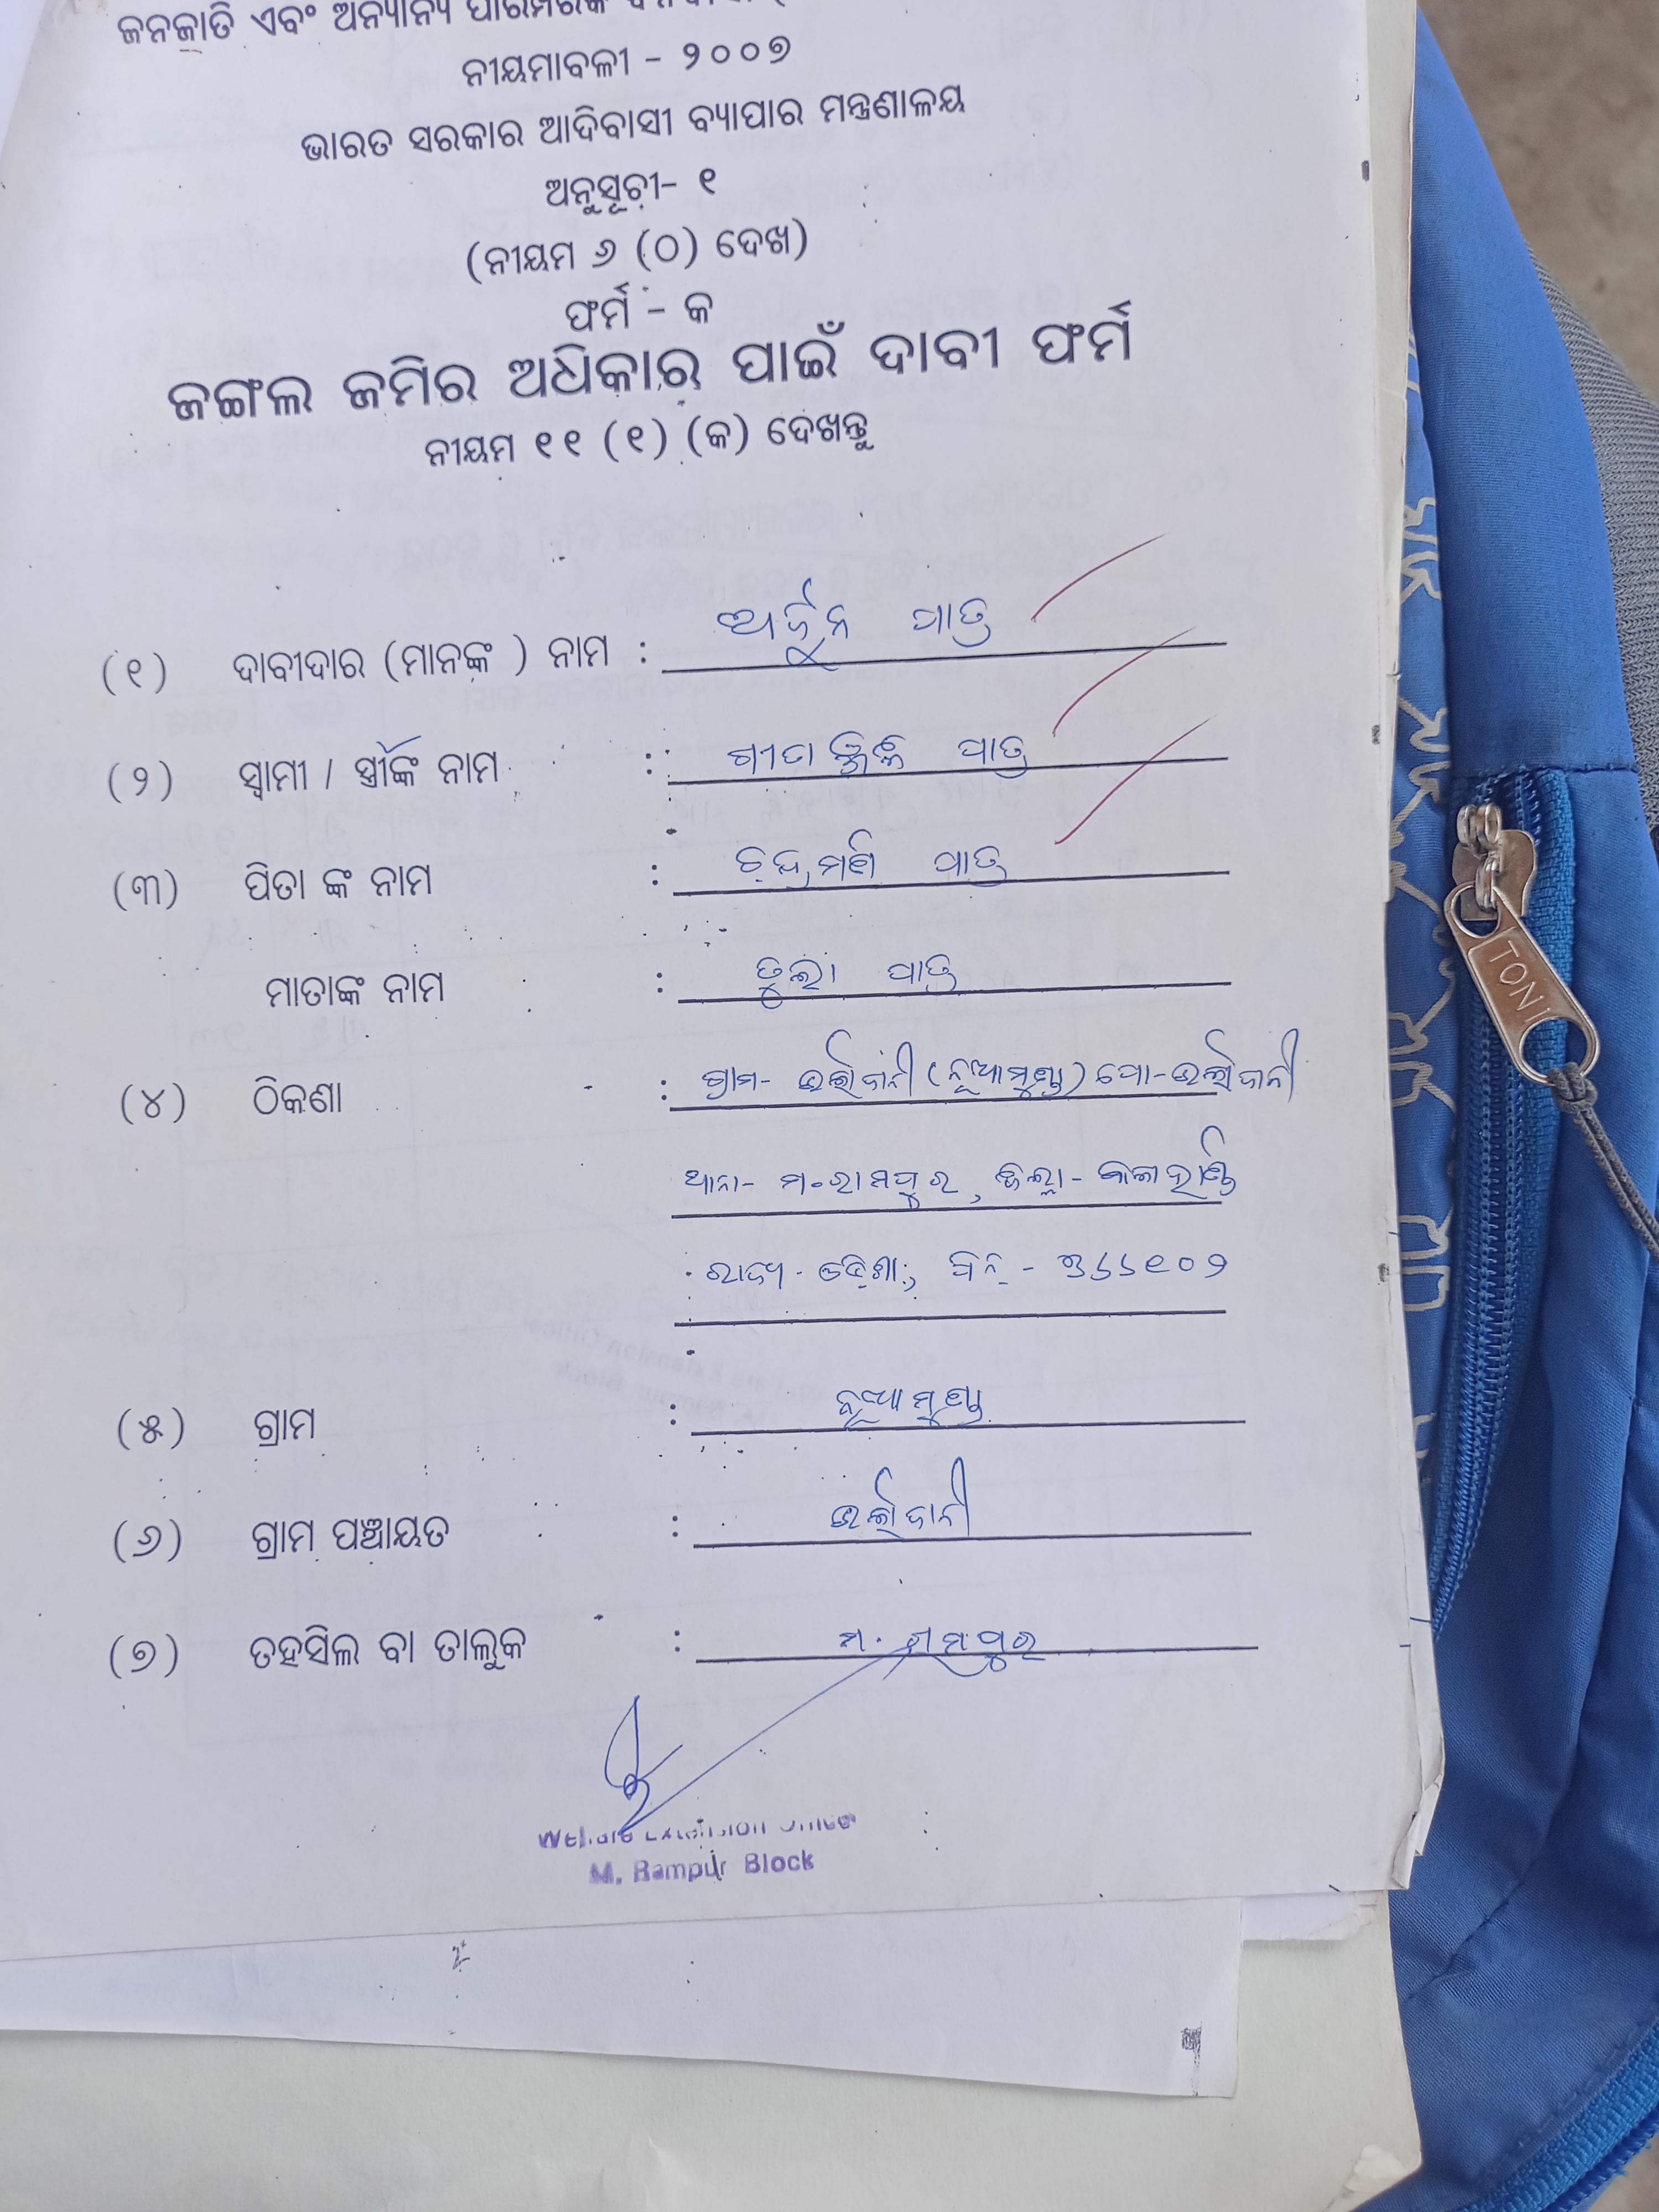 ଜନଜାତି ଏବଂ ଅନ୍ୟାନ୍ୟ ପାରମ୍ପରିକ
ନୀୟମାବଳୀ - ୨୦୦୭
ଭାରତ ସରକାର ଆଦିବାସୀ ବ୍ୟାପାର ମନ୍ତ୍ରଣାଳୟ
ଅନୁସୂଚୀ- ୧
(ନୀୟମ ୬ (୦) ଦେଖ)
ଫର୍ମ - କ
ଜଙ୍ଗଲ ଜମିର ଅଧିକାର ପାଇଁ ଦାବୀ ଫର୍ମ
ନୀୟମ ୧୧ (୧) (କ) ଦେଖନ୍ତୁ
(୧) ଦାବୀଦାର (ମାନଙ୍କ ) ନାମ : ଅର୍ଜୁନ ପାତ୍ର
(୨) ସ୍ଵାମୀ / ସ୍ତ୍ରୀଙ୍କ ନାମ : ଗୀତାଞ୍ଜଳି ପାତ୍ର
(୩) ପିତା ଙ୍କ ନାମ : ଚନ୍ଦ୍ରମଣି ପାତ୍ର
ମାତାଙ୍କ ନାମ : ତୁଲା ପାତ୍ର
(୪) ଠିକଣା : ଗ୍ରାମ- (ନୂଆମୁଣ୍ଡା) ପୋ-
ଥାନା- ମ.ରାମପୁର, ଜିଲ୍ଲା- କଳାହାଣ୍ଡି
ରାଜ୍ୟ- ଓଡ଼ିଶା, ପିନ୍ - ୭୬୬୧୦୨
(୫) ଗ୍ରାମ : ନୂଆମୁଣ୍ଡା
(୬) ଗ୍ରାମ ପଞ୍ଚାୟତ :
(୭) ତହସିଲ ବା ତାଲୁକ : ମ. ରାମପୁର
Welfare Extension Officer
M. Rampur Block
TONI